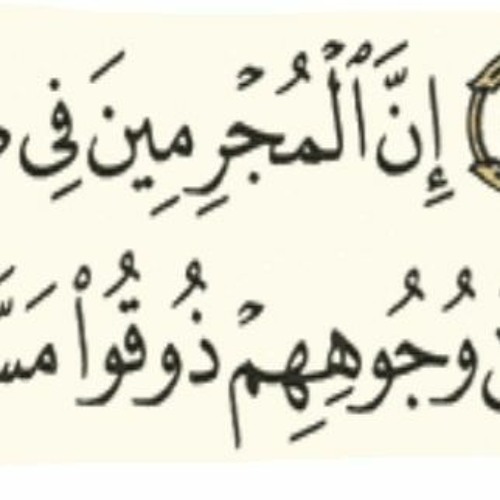 إِنَّ ٱلْمُجْرِمِينَ فِى
وُجُوهِهِمْ ذُوقُوا۟